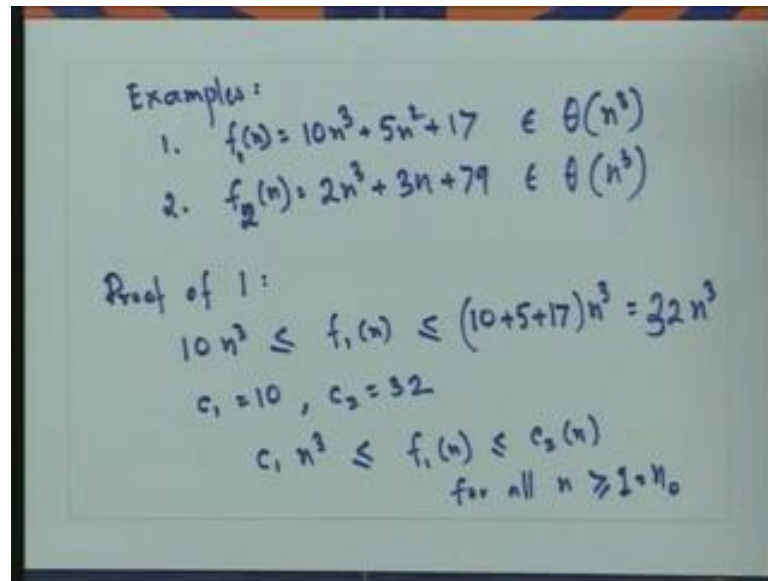 Examples:
1. f₁(n) = 10n³ + 5n² + 17 ∈ θ(n³)
2. f₂(n) = 2n³ + 3n + 79 ∈ θ(n³)
Proof of 1:
10 n³ ≤ f₁(n) ≤ (10+5+17)n³ = 32n³
c₁ = 10, c₂ = 32
c₁ n³ ≤ f₁(n) ≤ c₂(n)
for all n ≥ 1 = n₀